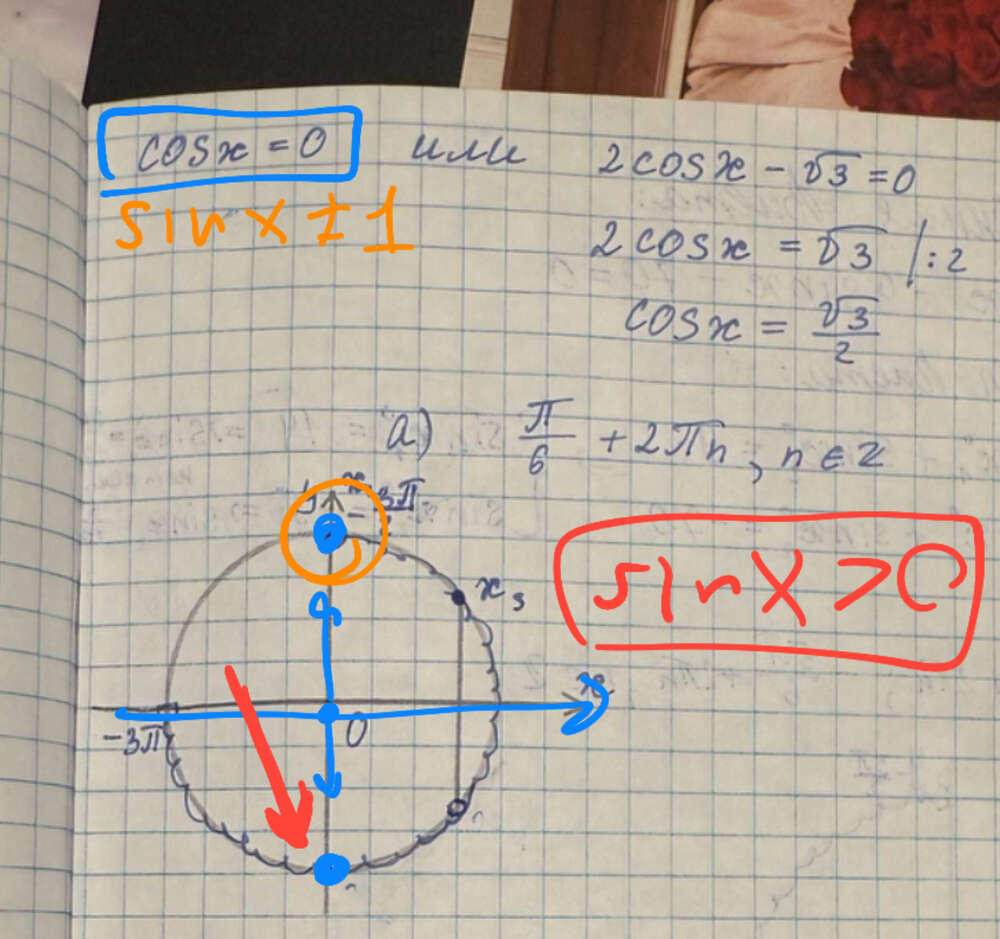 cosx = 0 или 2cosx - √3 = 0
sin x ± 1
2cosx = √3 |:2
cosx = √3/2
а) π/6 + 2πn, n ∈ Z
y
sin x > 0
x₃
x
-3π
0